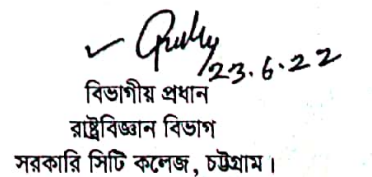 23.6.22
বিভাগীয় প্রধান
রাষ্ট্রবিজ্ঞান বিভাগ
সরকারি সিটি কলেজ, চট্টগ্রাম।